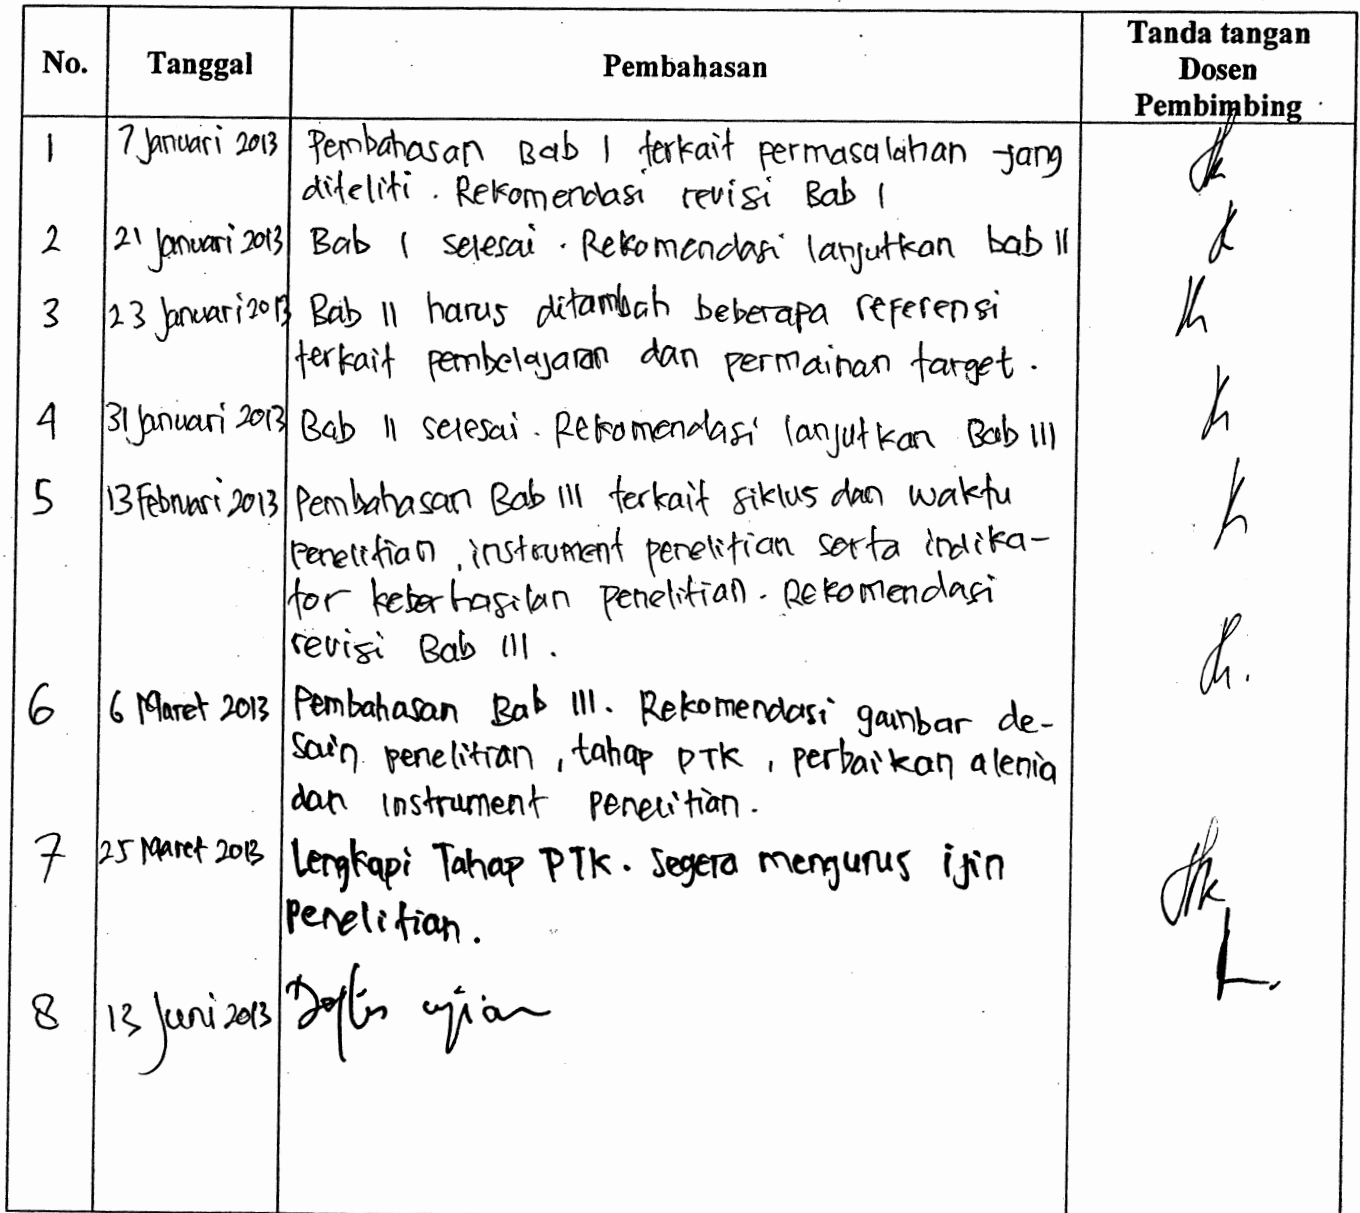 No. Tanggal Pembahasan Tanda tangan
Dosen
Pembimbing
1 7 Januari 2013 Pembahasan Bab I terkait permasalahan yang
diteliti. Rekomendasi revisi Bab I
2 21 Januari 2013 Bab I selesai. Rekomendasi lanjutkan bab II
3 23 Januari 2013 Bab II harus ditambah beberapa referensi
terkait pembelajaran dan permainan target.
4 31 Januari 2013 Bab II selesai. Rekomendasi lanjutkan Bab III
5 13 Februari 2013 Pembahasan Bab III terkait siklus dan waktu
penelitian, instrument penelitian serta indika-
tor keberhasilan penelitian. Rekomendasi
revisi Bab III.
6 6 Maret 2013 Pembahasan Bab III. Rekomendasi gambar de-
sain penelitian, tahap PTK, perbaikan alenia
dan instrument penelitian.
7 25 Maret 2013 Lengkapi Tahap PTK. Segera mengurus ijin
penelitian.
8 13 Juni 2013 ujian